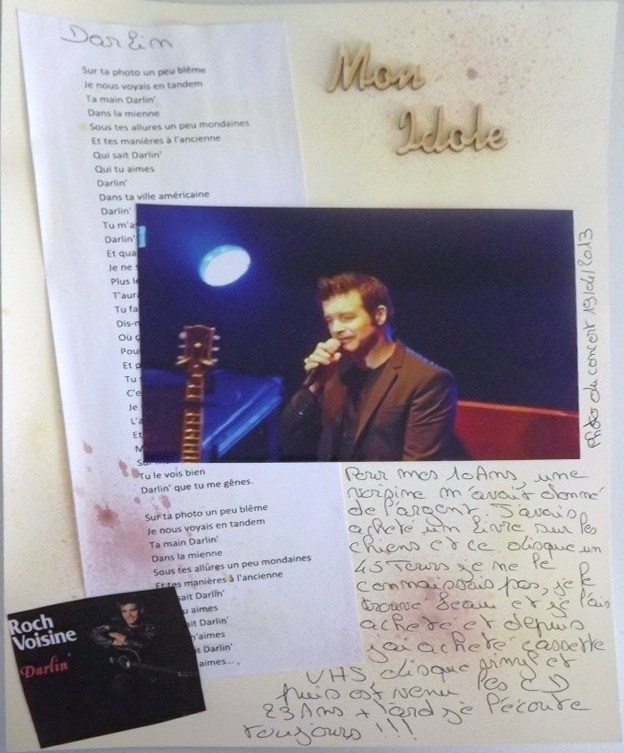 Darlin
Mon
Idole
Sur ta photo un peu blême
Je nous voyais en tandem
Ta main Darlin'
Dans la mienne
Sous tes allures un peu mondaines
Et tes manières à l'ancienne
Qui sait Darlin'
Qui tu aimes
Darlin'
Dans ta ville américaine
Darlin'
Tu m'a
Darlin'
Et qua
Je ne
Plus l
T'aura
Tu fa
Dis-m
Où
Pou
Et p
Tu
C'e
Je
L'a
Et
M
Su
Tu le vois bien
Darlin' que tu me gênes.
Sur ta photo un peu blême
Je nous voyais en tandem
Ta main Darlin'
Dans la mienne
Sous tes allures un peu mondaines
Et tes manières à l'ancienne
sait Darlin'
u aimes
ait Darlin'
n'aimes
it Darlin'
aimes...
Photo du concert 19/04/2013
Pour mes 10 Ans, une
voisine m'avait donné
de l'argent. J'avais
acheté un livre sur les
chiens et ce disque un
45 Tours je ne le
connaissais pas, je le
trouve beau et je l'ais
acheté et depuis
j'ai acheté cassette
VHS disque vinyl et
puis est venu les CD
23 Ans + tard je l'écoute
toujours !!!
Roch
Voisine
Darlin'